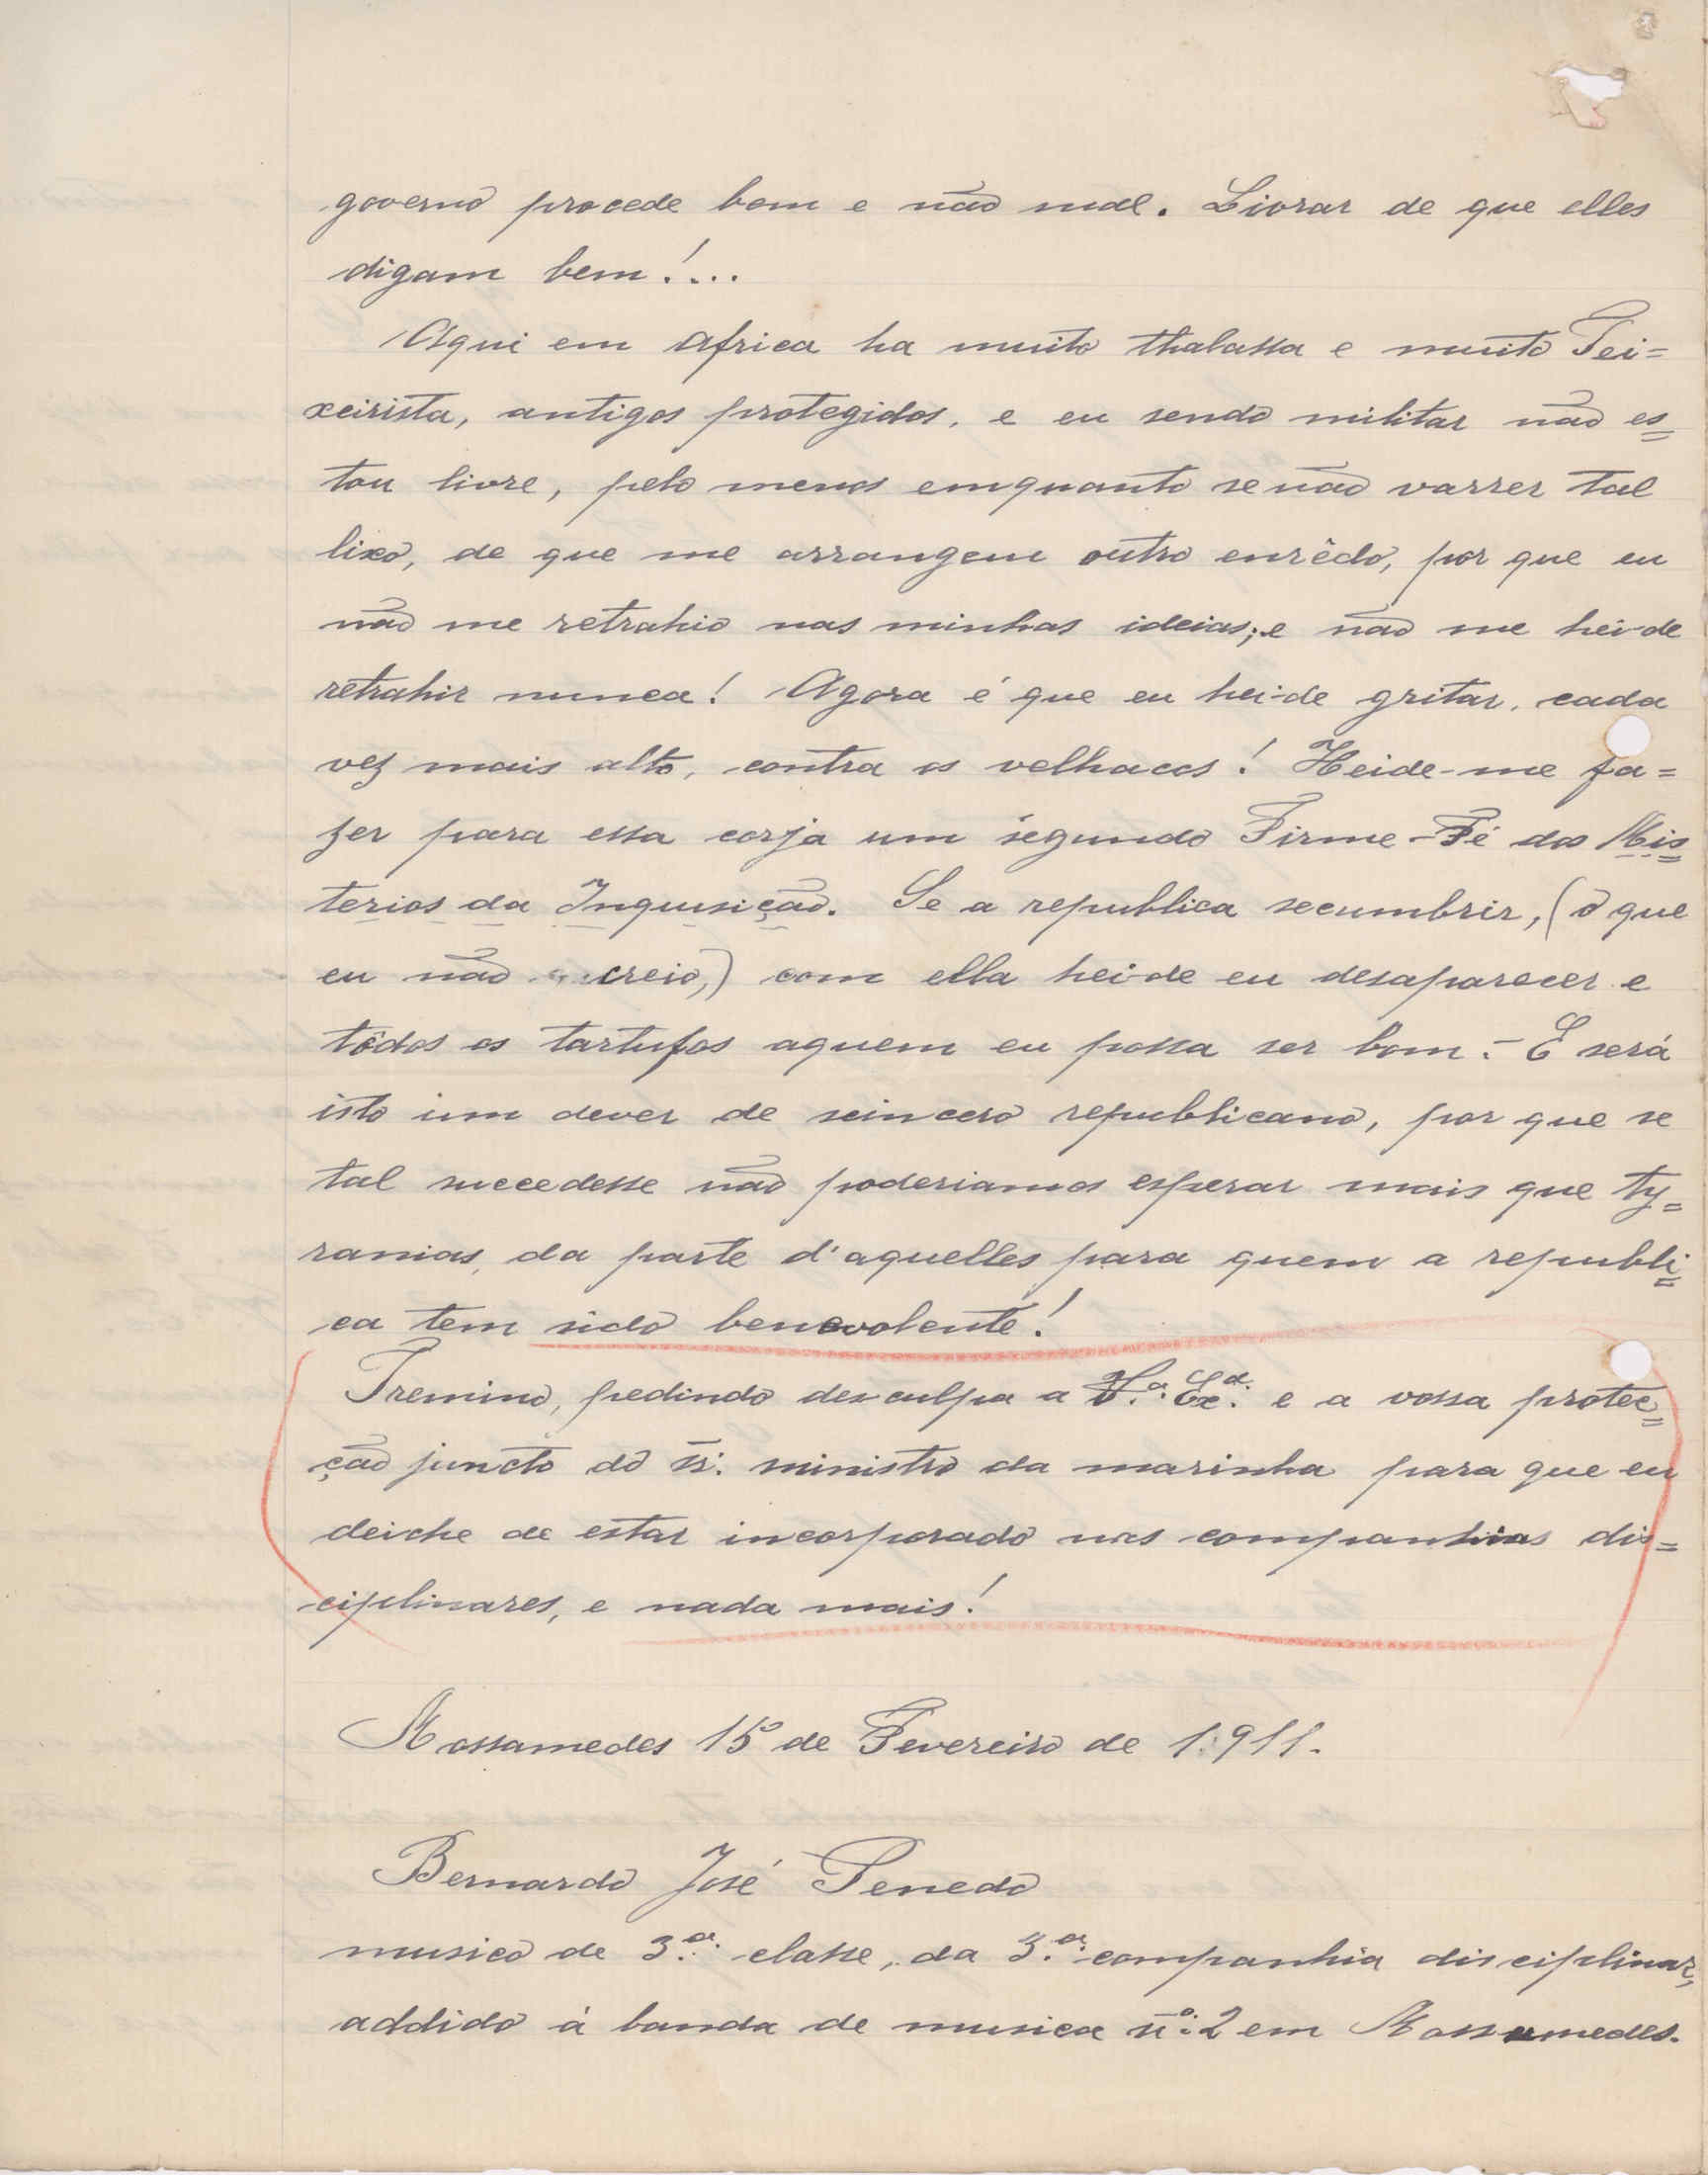 governo procede bem e não mal. Livrar de que elles
digam bem!...
Aqui em Africa ha muito thalassa e muito Tei=
xeirista, antigos protegidos, e eu sendo militar não es=
tou livre, pelo menos emquanto se não varrer tal
lixo, de que me arrangem outro enrêdo, por que eu
não me retrahio nas minhas ideias; e não me hei-de
retrahir nunca! Agora é que eu hei-de gritar, cada
vez mais alto, contra os velhacos! Heide-me fa=
zer para essa corja um segundo Firme-Fé dos Mis=
terios da Inquisição. Se a republica secumbrir, (o que
eu não creio,) com ella hei-de eu desaparecer e
tôdos os tartufos aquem eu possa ser bom. - E será
isto um dever de seincero republicano, por que se
tal succedesse não poderiamos esperar mais que ty=
ranias, da parte d'aquelles para quem a republi=
ca tem sido benevolente!
Tremino, pedindo desculpa a V.ª Ex.ª e a vossa protec=
ção juncto do sr. ministro da marinha para que eu
deiche de estar incorporado nas companhias dis=
ciplinares, e nada mais!
Mossamedes 15 de Fevereiro de 1:911.
Bernardo José Penedo
musico de 3.ª classe, da 3.ª companhia disciplinar,
addido á banda de musica n.º 2 em Mossamedes.